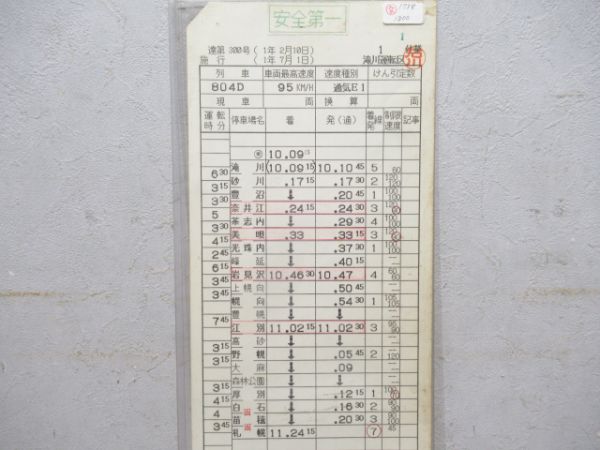 安全第一
1
達第 300号 ( 1年 2月10日)
施 行 ( 1年 7月 1日)
滝川運転区
列 車 車両最高速度 速度種別 けん引定数
804D 95 KM/H 通気E1
現 車 両 換 算 両
運転時分 停車場名 着 発(通) 着発線 制限速度 記事
10.09
滝 川 (10.09 15) 10.10 45 5 60
6 30
砂 川 .17 15 .17 30 2 120 100
3 15
豊 沼 ↓ .20 45 1 100 100
3 15
奈井江 .24 15 .24 30 3
5
茶志内 ↓ .29 30 4 100 100
3 30
美 唄 .33 .33 15 3
4 15
光珠内 ↓ .37 30 1 100
2 45
峰 延 ↓ .40 15
6 15
岩見沢 10.46 30 10.47 4 60
3 15
上幌向 ↓ .50 45
幌 向 ↓ .54 30 1 105 105
豊 幌 ↓ ↓
7 45
江 別 11.02 15 11.02 30 3 90
高 砂 ↓ ↓
3 15
野 幌 ↓ .05 45 2 120
大 麻 ↓ .09
森林公園 ↓ ↓
3 15
厚 別 ↓ .12 15 1 100
4 15
白 石 ↓ .16 30 2 90 90
4
苗 穂 ↓ .20 30 3 90 100
3 45
札 幌 11.24 15 7 45